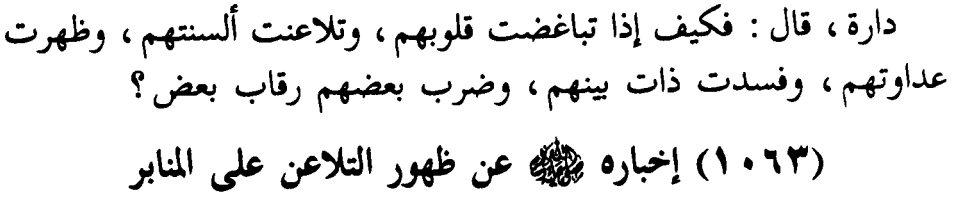 دارة ، قال : فكيف إذا تباغضت قلوبهم ، وتلاعنت ألسنتهم ، وظهرت
عداوتهم ، وفسدت ذات بينهم ، وضرب بعضهم رقاب بعض ؟
(١٠٦٣) إخباره ﷺ عن ظهور التلاعن على المنابر